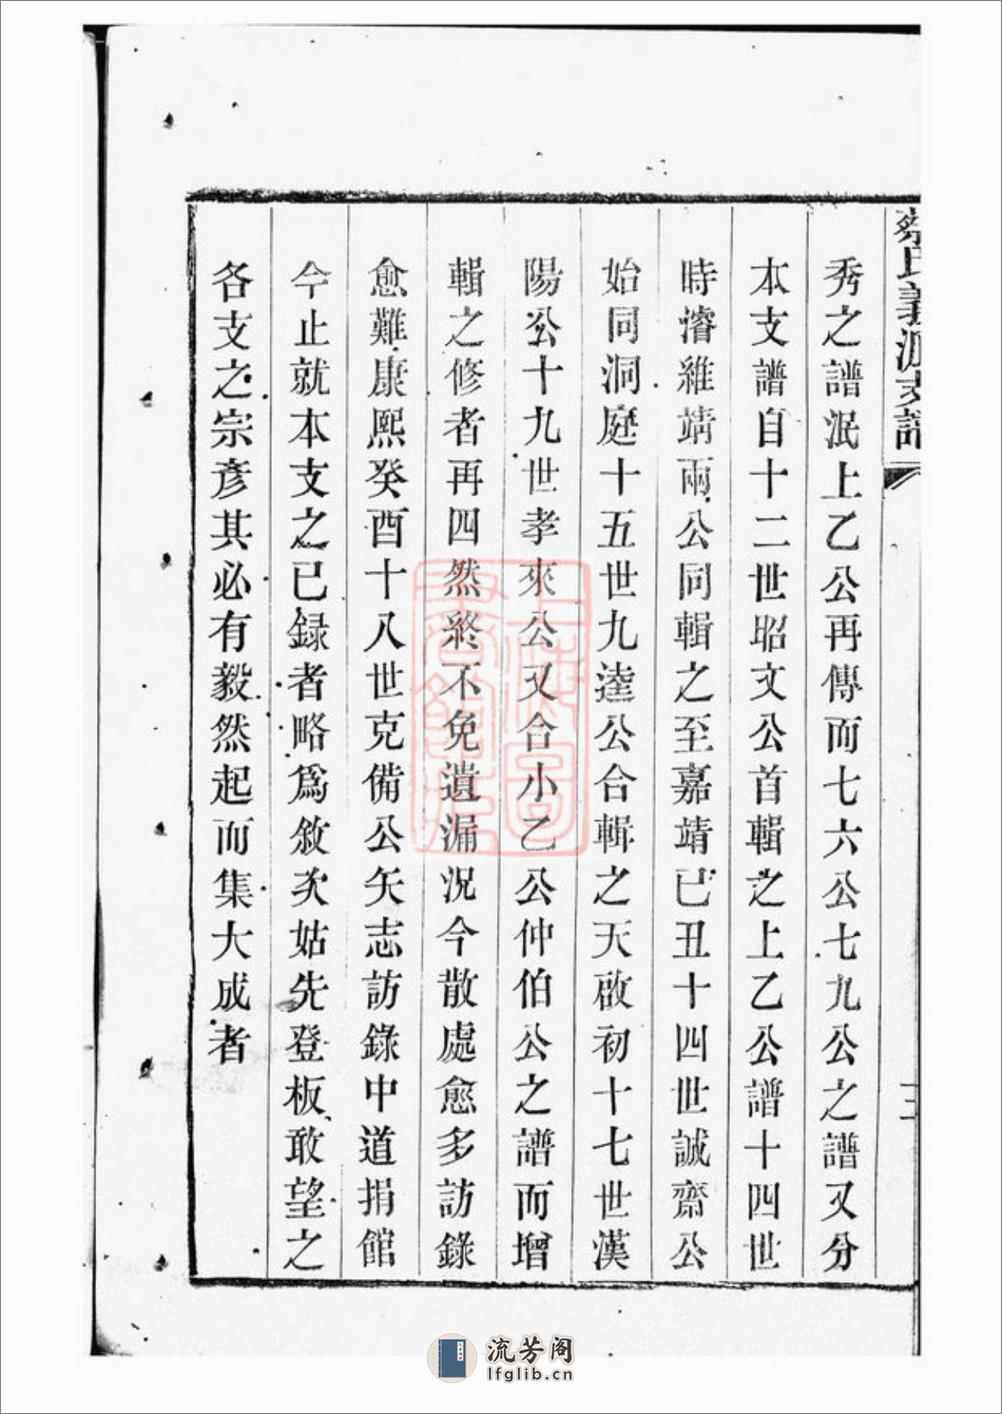 蔡氏義源支譜
三
秀之譜泯上乙公再傳而七六公七九公之譜又分
本支譜自十二世昭文公首輯之上乙公譜十四世
時濬維靖雨公同輯之至嘉靖己丑十四世誠齋公
始同洞庭十五世九逵公合輯之天啟初十七世漢
陽公十九世孝來公又合小乙公仲伯公之譜而增
輯之修者再四然終不免遺漏況今散處愈多訪錄
愈難康熙癸酉十八世克備公矢志訪錄中道捐館
今止就本支之已録者略爲敘次姑先登板敢望之
各支之宗彥其必有毅然起而集大成者
上海圖書館藏
流芳阁
lfglib.cn